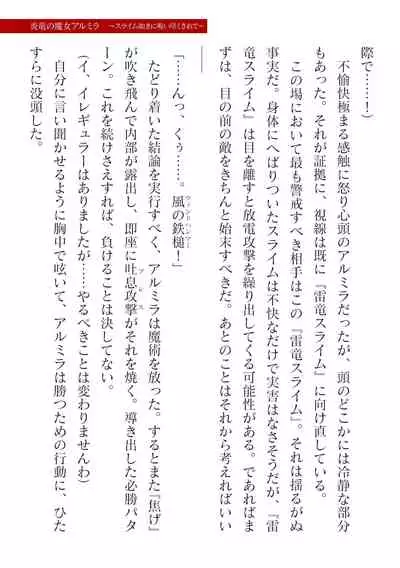 炎竜の魔女アルミラ　～スライム如きに吸い尽くされて～
際で……！）
　不愉快極まる感触に怒り心頭のアルミラだったが、頭のどこかには冷静な部分
もあった。それが証拠に、視線は既に『雷竜スライム』に向け直している。
　この場において最も警戒すべき相手はこの『雷竜スライム』。それは揺るがぬ
事実だ。身体にへばりついたスライムは不快なだけで実害はなさそうだが、『雷
竜スライム』は目を離すと放電攻撃を繰り出してくる可能性がある。であればま
ずは、目の前の敵をきちんと始末すべきだ。あとのことはそれから考えればいい
――
「……んっ、くぅ……。風の鉄槌！」
　たどり着いた結論を実行すべく、アルミラは魔術を放った。するとまた『焦げ』
が吹き飛んで内部が露出し、即座に吐息攻撃がそれを焼く。導き出した必勝パタ
ーン。これを続けさえすれば、負けることは決してない。
（イ、イレギュラーはありましたが……やるべきことは変わりませんわ）
　自分に言い聞かせるように胸中で呟いて、アルミラは勝つための行動に、ひた
すらに没頭した。